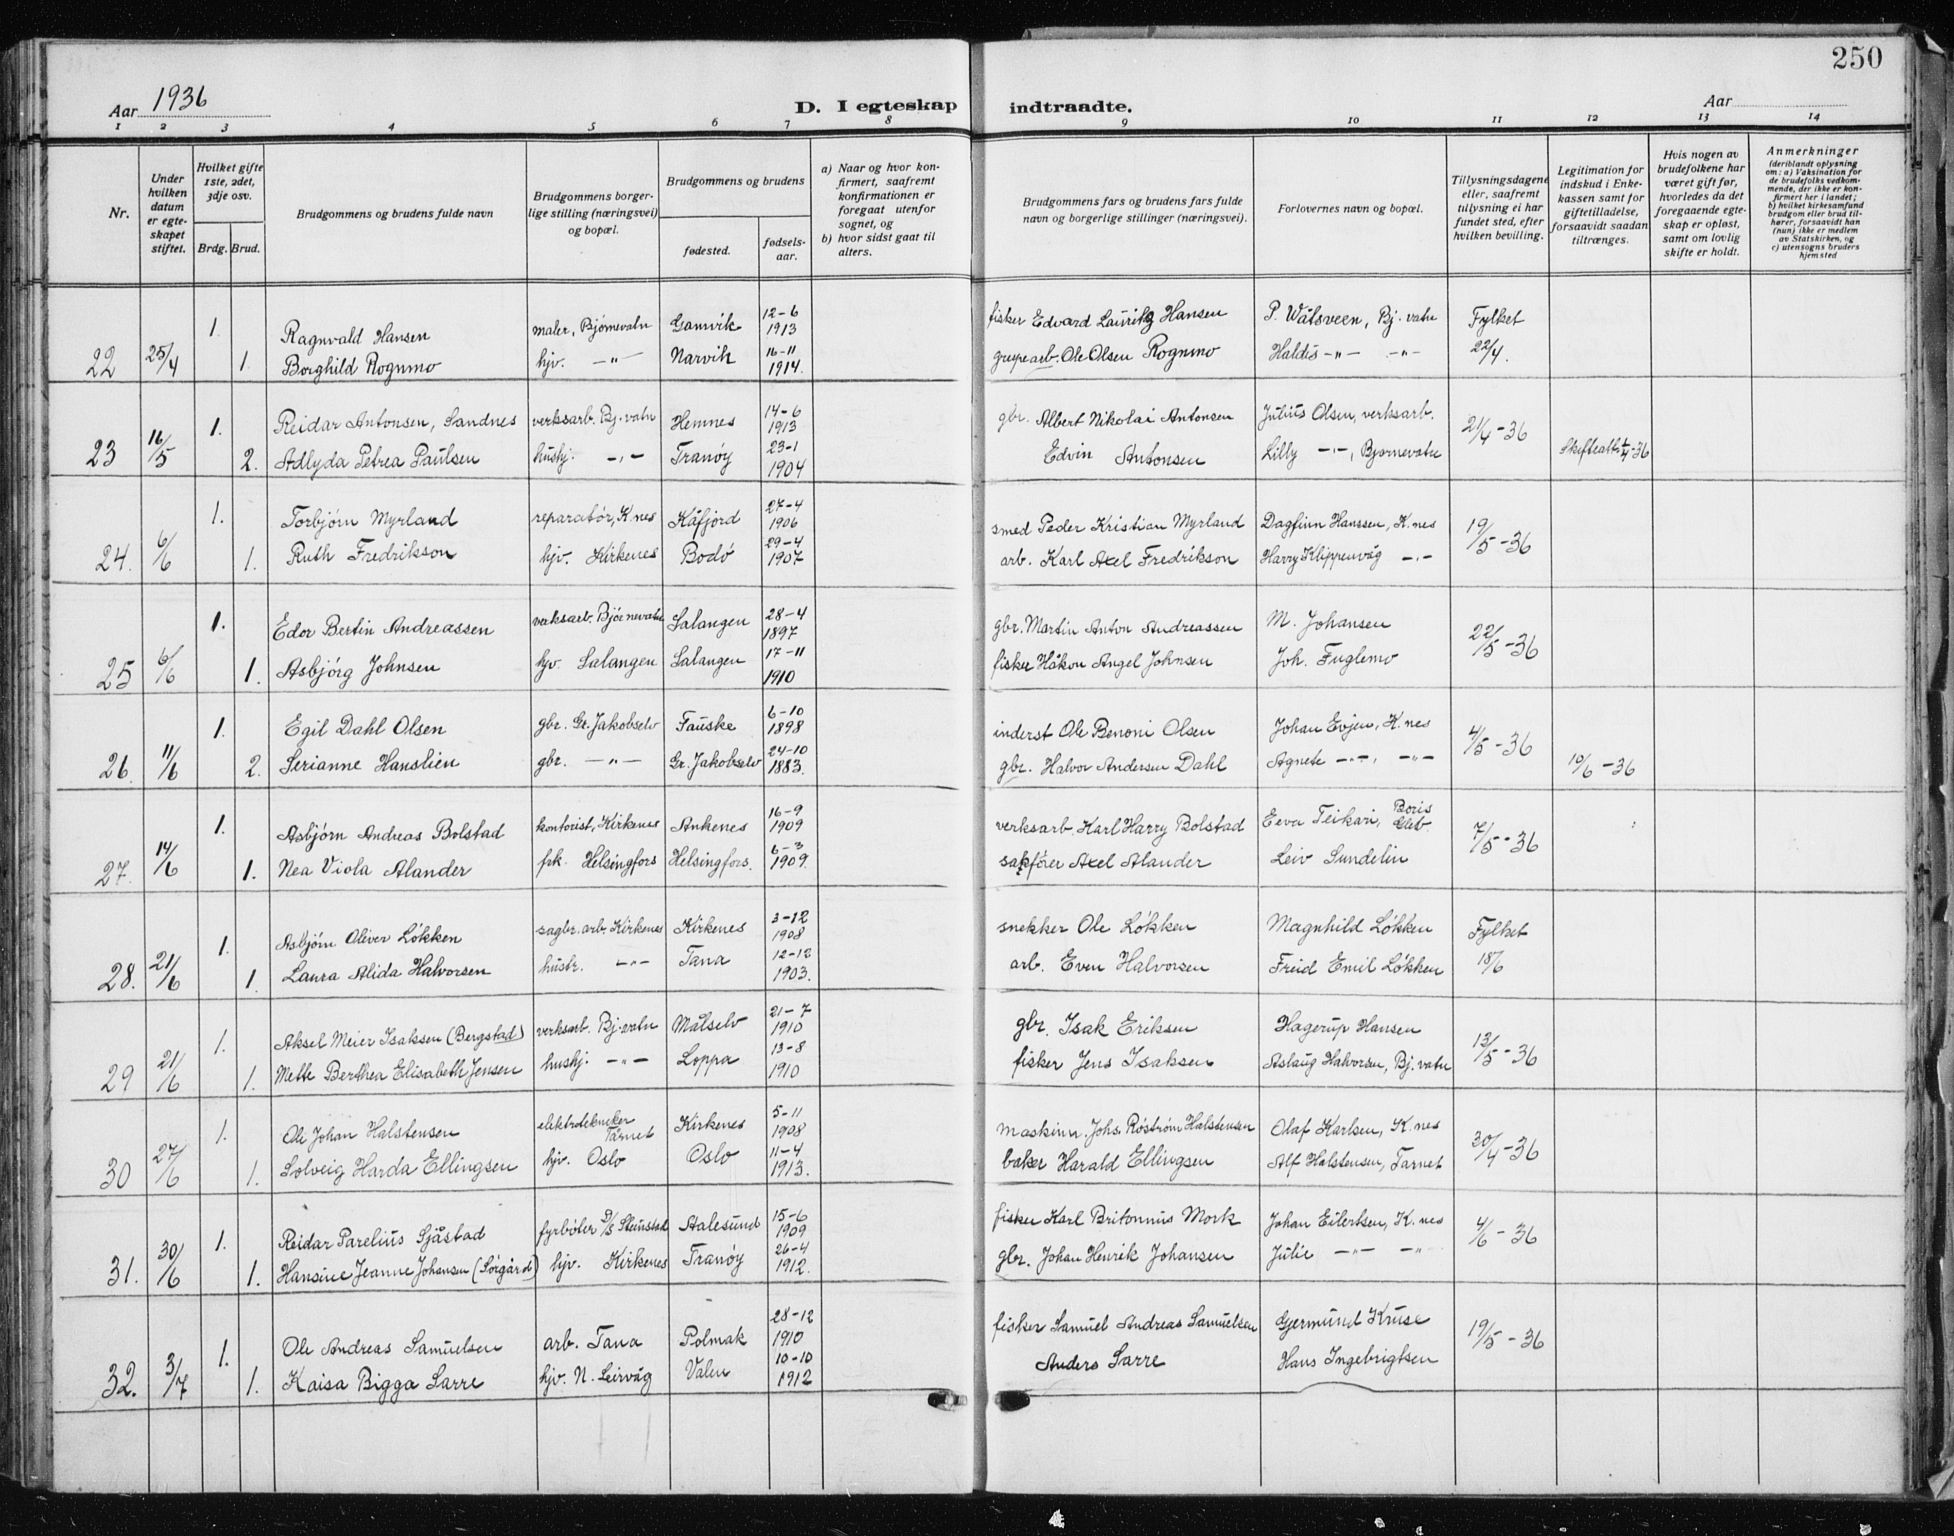 250
Aar 1936
D. I egteskap indtraadte.
Aar
1 2 3 4 5 6 7 8 9 10 11 12 13 14
Nr.
Under hvilken datum er egteskapet stiftet.
Hvilket gifte 1ste, 2det, 3dje osv.
Brdg. Brud.
Brudgommens og brudens fulde navn
Brudgommens borgerlige stilling (næringsvei) og bopæl.
Brudgommens og brudens
fødested.
fødselsaar.
a) Naar og hvor konfirmert, saafremt konfirmationen er foregaat utenfor sognet, og
b) hvor sidst gaat til alters.
Brudgommens fars og brudens fars fulde navn og borgerlige stillinger (næringsvei).
Forlovernes navn og bopæl.
Tillysningsdagene eller, saafremt tillysning ei har fundet sted, efter hvilken bevilling.
Legitimation for indskud i Enkekassen samt for giftetilladelse, forsaavidt saadan tiltrænges.
Hvis nogen av brudefolkene har været gift før, hvorledes da det foregaaende egteskap er opløst, samt om lovlig skifte er holdt.
Anmerkninger
(deriblandt oplysning om: a) Vaksination for de brudefolks vedkommende, der ikke er konfirmert her i landet; b) hvilket kirkesamfund brudgom eller brud tilhører, forsaavidt han (hun) ikke er medlem av Statskirken, og c) utensogns bruders hjemsted
1. Ragnvald Hansen maler, Bjørnevatn Gamvik 12-6 1913 fisker Edvard Lauritz Hansen P. Wålsveen, Bj. vatn Fylket
22 25/4 1. Borghild Rognmo hjv. —"— Narvik 16-11 1914. Ole Olsen Rognmo Haldis -"- -"- 22/4.
1. Reidar Antonsen, Sandnes verksarb. Bj. vatn Hemnes 14-6 1913 gbr. Albert Nikolai Antonsen Julius Olsen, verksarb. 21/4-36
23 16/5 2. Adlyda Petrea Paulsen hushj. -"- Tranøy 23-1 1904 Edvin Antonsen Lilly -"-, Bjørnevatn
1. Torbjørn Myrland reparatør, K.nes Kåfjord 27-4 1906 smed Peder Kristian Myrland Dagfinn Hanssen, K.nes 19/5-36
24. 6/6 1. Ruth Fredrikson hjv. Kirkenes Bodø 29-4 1907 arb. Karl Axel Fredrikson Harry Klippenvåg -"-
1. Edor Bertin Andreassen verksarb. Bjørnevatn Salangen 28-4 1897 gbr. Martin Anton Andreassen M. Johansen 22/5-36
25 6/6 1. Asbjørg Johnsen hjv. Salangen Salangen 17-11 1910 fisker Håkon Angel Johnsen Joh. Fuglemo
1. Egil Dahl Olsen gbr. Gr. Jakobselv Fauske 6-10 1898 inderst Ole Benoni Olsen Johan Evjen, K.nes 4/5-36
26. 11/6 2. Serianne Hanslien gbr. —"— Gr. Jakobselv 24-10 1883. gbr. Halvor Andersen Dahl Agnete -"-, -"- 10/6-36
1. Asbjørn Andreas Bolstad kontorist, Kirkenes Ankenes 16-9 1909 verksarb. Karl Harry Bolstad Eeva Teikari, Boris Gleb 7/5-36
27. 14/6 1. Nea Viola Alander frk. Helsingfors Helsingfors. 6-3 1909. sakfører Axel Alander Leiv Sundelin
1. Asbjørn Oliver Løkken sagbr. arb. Kirkenes Kirkenes 3-12 1908 snekker Ole Løkken Magnhild Løkken Fylket
28. 21/6 1. Laura Alida Halvorsen hustr. -"- Tana 12-12 1903. arb. Even Halvorsen Freid Emil Løkken 18/6
1. Aksel Meier Isaksen (Bergstad) verksarb. Bj. vatn Målselv 21-7 1910 gbr. Isak Eriksen Hagerup Hansen 13/5-36
29 21/6 1. Mette Berthea Elisabeth Jensen hushj. -"- Loppa 13-8 1910 fisker Jens Isaksen Aslaug Halvorsen, Bj. vatn
1. Ole Johan Halstensen elektrotekneker Tårnet Kirkenes 5-11 1908 maskinn. Johs. Røstrøm Halstensen Olaf Karlsen, K.nes 30/4-36
30 27/6 1. Solveig Harda Ellingsen hjv. Oslo Oslo 11-4 1913. baker Harald Ellingsen Alf Halstensen, Tårnet
1. Reidar Parelius Sjåstad fyrbøter S/S Steinstad Aalesund 15-6 1909 fisker Karl Britonnus Mork Johan Eilertsen, K.nes 4/6-36
31. 30/6 1. Hansine Jeanne Johansen (Sørgård) hjv. Kirkenes Tranøy 26-4 1912. gbr. Johan Henrik Johansen Julie -"- -"-
1. Ole Andreas Samuelsen arb. Tana Polmak 28-12 1910 fisker Samuel Andreas Samuelsen Gjermund Kruse 19/5-36
32. 3/7 1. Kaisa Bigga Sarre hjv. N. Leirvåg Valen 10-10 1912 Anders Sarre Hans Ingebrigtsen